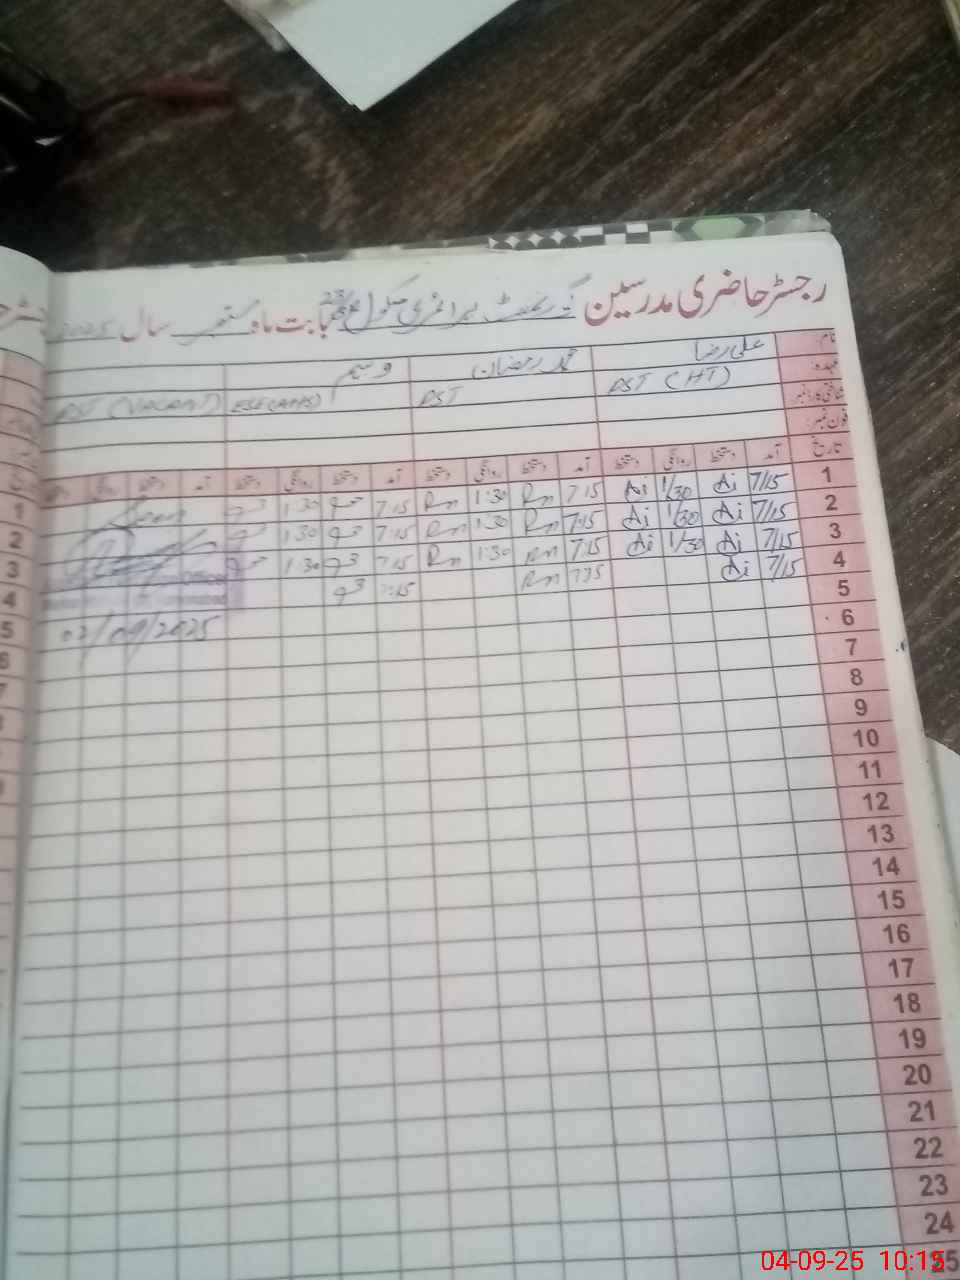 رجسٹر حاضری مدرسین گورنمنٹ پرائمری سکول بابت ماہ ستمبر سال 2025
نام علی رضا محمد رمضان وسیم
عہدہ: PST (HT) PST ESE(AHS) PST (VACANT)
شناختی کارڈ نمبر
فون نمبر:
تاریخ آمد دستخط روانگی دستخط آمد دستخط روانگی دستخط آمد دستخط روانگی دستخط آمد دستخط روانگی
1 7/15 Ai 1/30 Ai 7:15 Rm 1:30 Rm 7:15 1:30
2 7/15 Ai 1/30 Ai 7:15 Rm 1:30 Rm 7:15 1:30
3 7/15 Ai 1/30 Ai 7:15 Rm 1:30 Rm 7:15 1:30
4 7/15 Ai Rm 7:15
5
02/09/2025
6
7
8
9
10
11
12
13
14
15
16
17
18
19
20
21
22
23
24
25
1
2
3
4
5
6
7
04-09-25 10:15